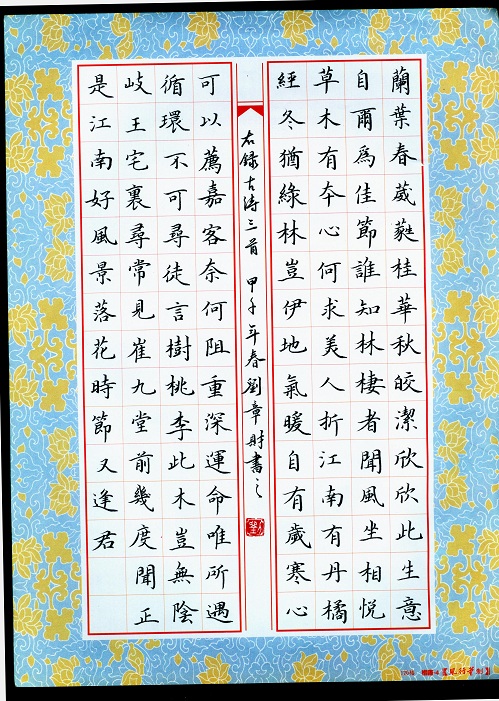 蘭葉春葳蕤桂華秋皎潔欣欣此生意
自爾爲佳節誰知林棲者聞風坐相悅
草木有本心何求美人折江南有丹橘
經冬猶綠林豈伊地氣暖自有歲寒心
可以薦嘉客奈何阻重深運命唯所遇
循環不可尋徒言樹桃李此木豈無陰
岐王宅裏尋常見崔九堂前幾度聞正
是江南好風景落花時節又逢君
右錄古詩三首 甲午年春劉章財書之